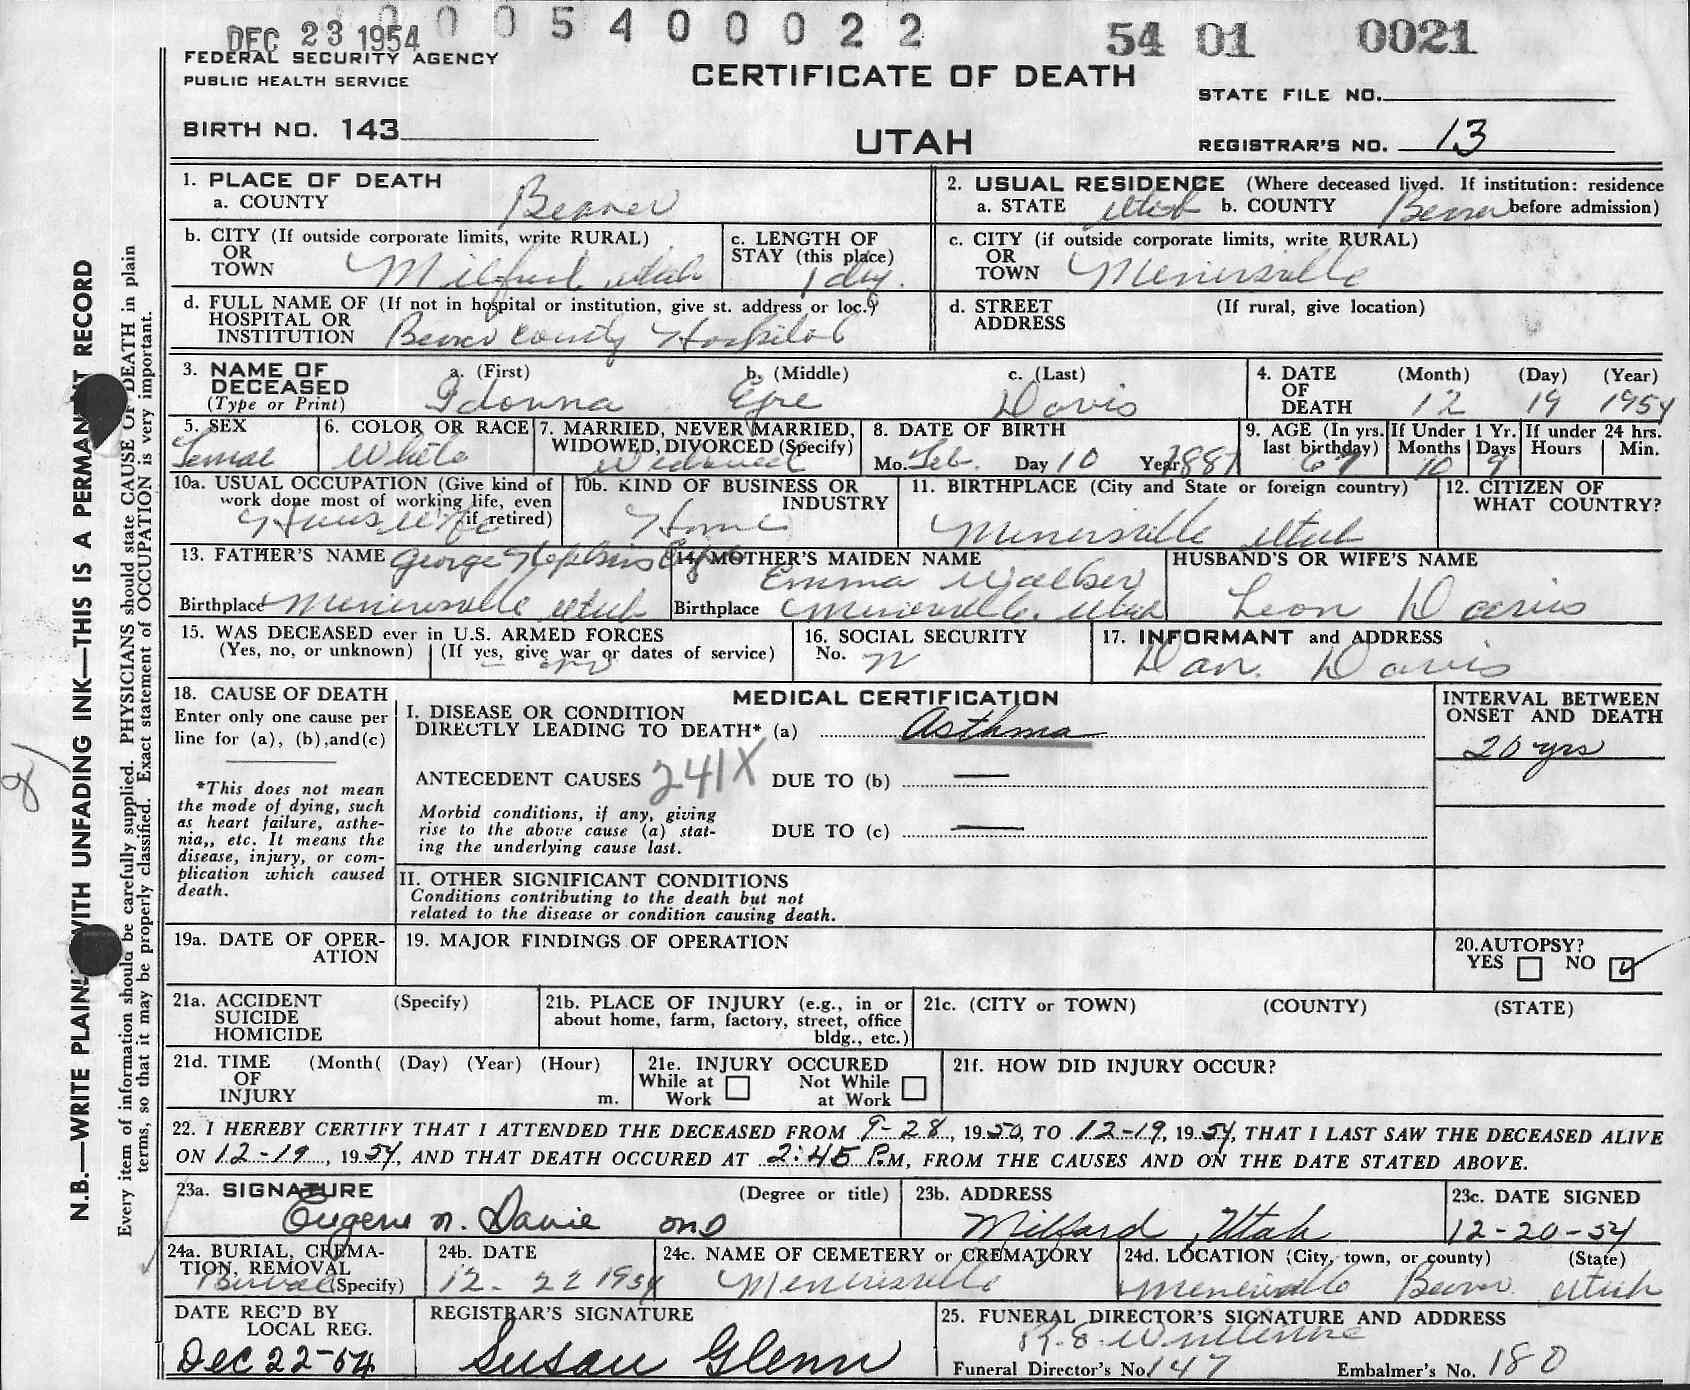 DEC 23 1954 0005400022 54 01 0021
FEDERAL SECURITY AGENCY
PUBLIC HEALTH SERVICE
CERTIFICATE OF DEATH
STATE FILE NO.
BIRTH NO. 143
UTAH
REGISTRAR'S NO. 13
1. PLACE OF DEATH
a. COUNTY Beaver
2. USUAL RESIDENCE (Where deceased lived. If institution: residence
a. STATE Utah b. COUNTY Beaver before admission)
b. CITY (If outside corporate limits, write RURAL)
OR
TOWN Milford, Utah
c. LENGTH OF
STAY (this place)
1 day.
c. CITY (if outside corporate limits, write RURAL)
OR
TOWN Minersville
d. FULL NAME OF (If not in hospital or institution, give st. address or loc.)
HOSPITAL OR
INSTITUTION Beaver County Hospital
d. STREET (If rural, give location)
ADDRESS
3. NAME OF DECEASED
(Type or Print)
a. (First) b. (Middle) c. (Last)
Idonna Eyre Davis
4. DATE OF DEATH
(Month) (Day) (Year)
12 19 1954
5. SEX
Female
6. COLOR OR RACE
White
7. MARRIED, NEVER MARRIED,
WIDOWED, DIVORCED (Specify)
Widowed
8. DATE OF BIRTH
Mo. Feb. Day 10 Year 1887
9. AGE (In yrs. last birthday)
67
If Under 1 Yr.
Months Days
10 9
If under 24 hrs.
Hours Min.
10a. USUAL OCCUPATION (Give kind of
work done most of working life, even
if retired)
Housewife
10b. KIND OF BUSINESS OR
INDUSTRY
Home
11. BIRTHPLACE (City and State or foreign country)
Minersville Utah
12. CITIZEN OF
WHAT COUNTRY?
13. FATHER'S NAME George Hopkins Eyre
Birthplace Minersville Utah
14. MOTHER'S MAIDEN NAME
Emma Walker
Birthplace Minersville, Utah
HUSBAND'S OR WIFE'S NAME
Leon Davis
15. WAS DECEASED ever in U.S. ARMED FORCES
(Yes, no, or unknown) (If yes, give war or dates of service)
no
16. SOCIAL SECURITY
No.
17. INFORMANT and ADDRESS
Dan. Davis
18. CAUSE OF DEATH
Enter only one cause per
line for (a), (b), and (c)
*This does not mean
the mode of dying, such
as heart failure, asthe-
nia,, etc. It means the
disease, injury, or com-
plication which caused
death.
MEDICAL CERTIFICATION
I. DISEASE OR CONDITION
DIRECTLY LEADING TO DEATH* (a) Asthma
ANTECEDENT CAUSES 241X DUE TO (b) —
Morbid conditions, if any, giving
rise to the above cause (a) stat-
ing the underlying cause last.
DUE TO (c) —
INTERVAL BETWEEN
ONSET AND DEATH
20 yrs
II. OTHER SIGNIFICANT CONDITIONS
Conditions contributing to the death but not
related to the disease or condition causing death.
19a. DATE OF OPER-
ATION
19. MAJOR FINDINGS OF OPERATION
20. AUTOPSY?
YES NO
21a. ACCIDENT (Specify)
SUICIDE
HOMICIDE
21b. PLACE OF INJURY (e.g., in or
about home, farm, factory, street, office
bldg., etc.)
21c. (CITY or TOWN) (COUNTY) (STATE)
21d. TIME (Month( (Day) (Year) (Hour)
OF
INJURY m.
21e. INJURY OCCURED
While at Work Not While at Work
21f. HOW DID INJURY OCCUR?
22. I HEREBY CERTIFY THAT I ATTENDED THE DECEASED FROM 9-28, 1950, TO 12-19, 1954, THAT I LAST SAW THE DECEASED ALIVE
ON 12-19, 1954, AND THAT DEATH OCCURED AT 2:45 P.M, FROM THE CAUSES AND ON THE DATE STATED ABOVE.
23a. SIGNATURE (Degree or title)
Eugene N. Davie MD
23b. ADDRESS
Milford, Utah
23c. DATE SIGNED
12-20-54
24a. BURIAL, CREMA-
TION, REMOVAL
Burial (Specify)
24b. DATE
12-22 1954
24c. NAME OF CEMETERY or CREMATORY
Minersville
24d. LOCATION (City, town, or county) (State)
Minersville Beaver Utah
DATE REC'D BY
LOCAL REG.
Dec 22-54
REGISTRAR'S SIGNATURE
Susan Glenn
25. FUNERAL DIRECTOR'S SIGNATURE AND ADDRESS
Funeral Director's No. 147 Embalmer's No. 180
N.B.—WRITE PLAINLY WITH UNFADING INK—THIS IS A PERMANENT RECORD
Every item of information should be carefully supplied. PHYSICIANS should state CAUSE OF DEATH in plain
terms, so that it may be properly classified. Exact statement of OCCUPATION is very important.